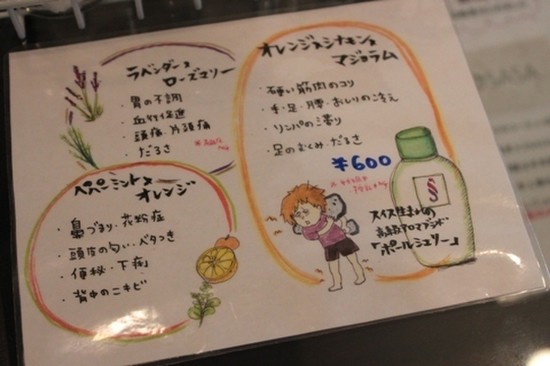 ラベンダー×
ローズマリー
・胃の不調
・血行促進
・頭痛・片頭痛
・だるさ
オレンジ×シナモン×
マジョラム
・硬い筋肉のコリ
・手・足・腰・おしりの冷え
・リンパの滞り
・足のむくみ・だるさ
¥600
ペパーミント×
オレンジ
・鼻づまり・花粉症
・頭皮の匂い・ベタつき
・便秘・下痢
・背中のニキビ
スイス生まれの
高級アロマブランド
「ポールシェリー」